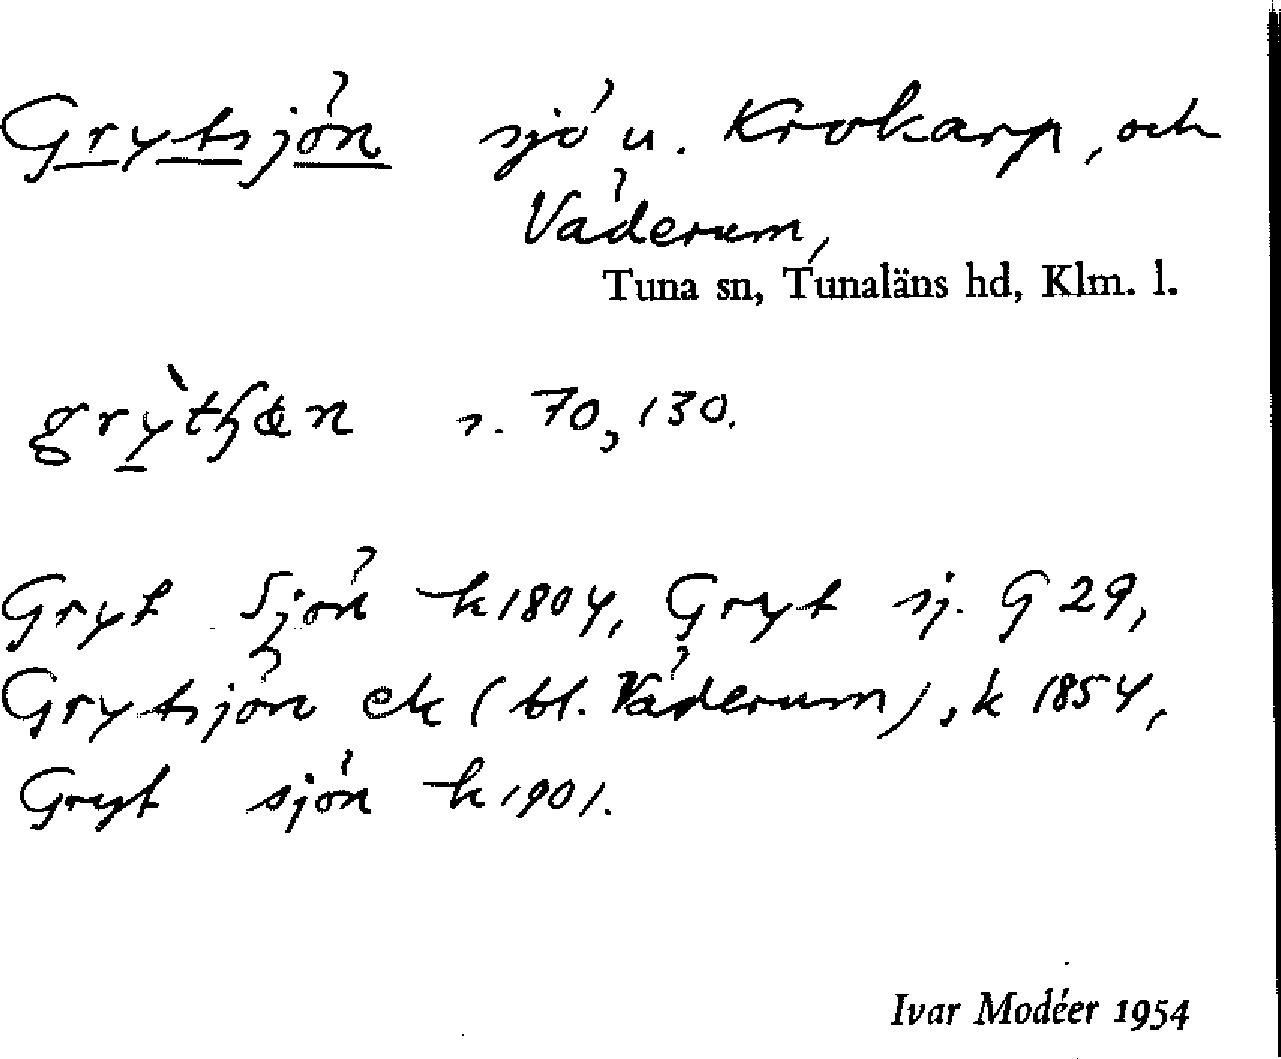 Grytsjön sjö u. Krokarp, och
Väderum,
Tuna sn, Tunaläns hd, Klm. l.
70, 130.
Gryt Sjön k 1804, Gryt sj. G 29,
Grytsjön ek (bl. Väderum), k 1854,
Gryt sjön k 1901.
Ivar Modéer 1954